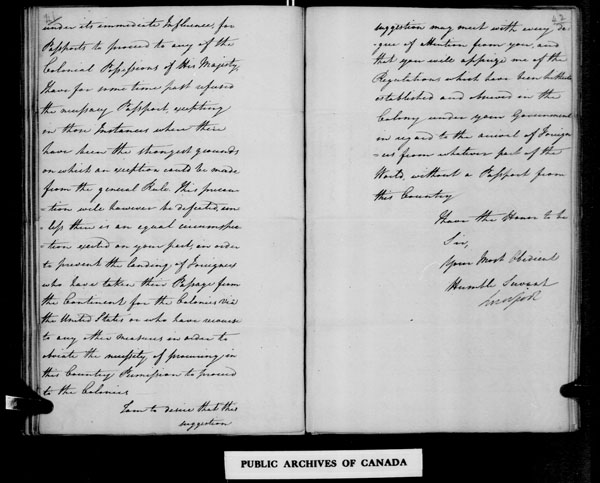 41
under its immediate Influence, for
Passports to proceed to any of the
Colonial Possessions of His Majesty,
I have for some time past refused
the necessary Passport, excepting
in those Instances where there
have been the strongest grounds
on which an exception could be made
from the general Rule. This precau-
-tion will however be defeated, un-
-less there is an equal circumspec-
-tion exerted on your part, in order
to prevent the landing of Foreigners
who have taken their Passage from
the Continent for the Colonies via
the United States or who have recourse
to any other measures in order to
obviate the necessity of procuring in
this Country Permission to proceed
to the Colonies
I am to desire that this
suggestion
42
suggestion may meet with every de-
-gree of attention from you, and
that you will apprize me of the
Regulations which have been hitherto
established and observed in the
Colony under your Government
in regard to the arrival of Foreign-
-ers from whatever part of the
World, without a Passport from
this Country
I have the Honor to be
Sir,
Your Most Obedient
Humble Servant
PUBLIC ARCHIVES OF CANADA